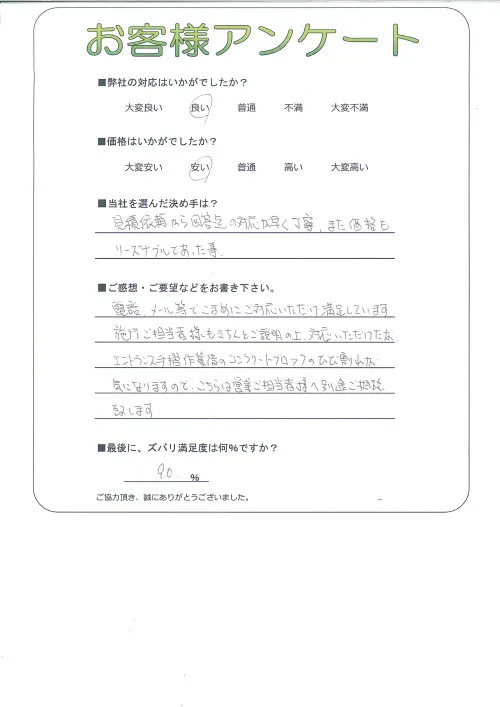 お客様アンケート
■弊社の対応はいかがでしたか？
大変良い 良い 普通 不満 大変不満
■価格はいかがでしたか？
大変安い 安い 普通 高い 大変高い
■当社を選んだ決め手は？
見積依頼から回答迄の対応が早く丁寧、また価格も
リーズナブルであった事
■ご感想・ご要望などをお書き下さい。
電話、メール等でこまめにご対応いただけ満足しています
施行ご担当者様もきちんとご説明の上、対応いただけたが
エントランス手摺作業後のコンクリートブロックのひび割れが
気になりますので、こちらは営業ご担当者様へ別途ご相談
致します
■最後に、ズバリ満足度は何%ですか？
90 %
ご協力頂き、誠にありがとうございました。